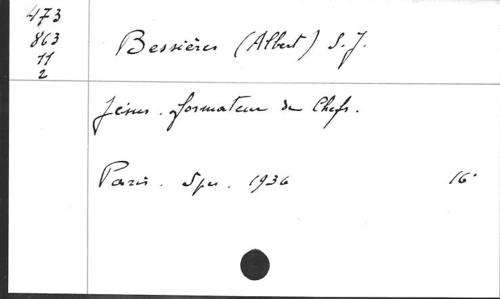 473
863
11
2
Bessières (Albert) S.J.
Jésus. formateur de Chefs.
Paris. Spes. 1936 16°